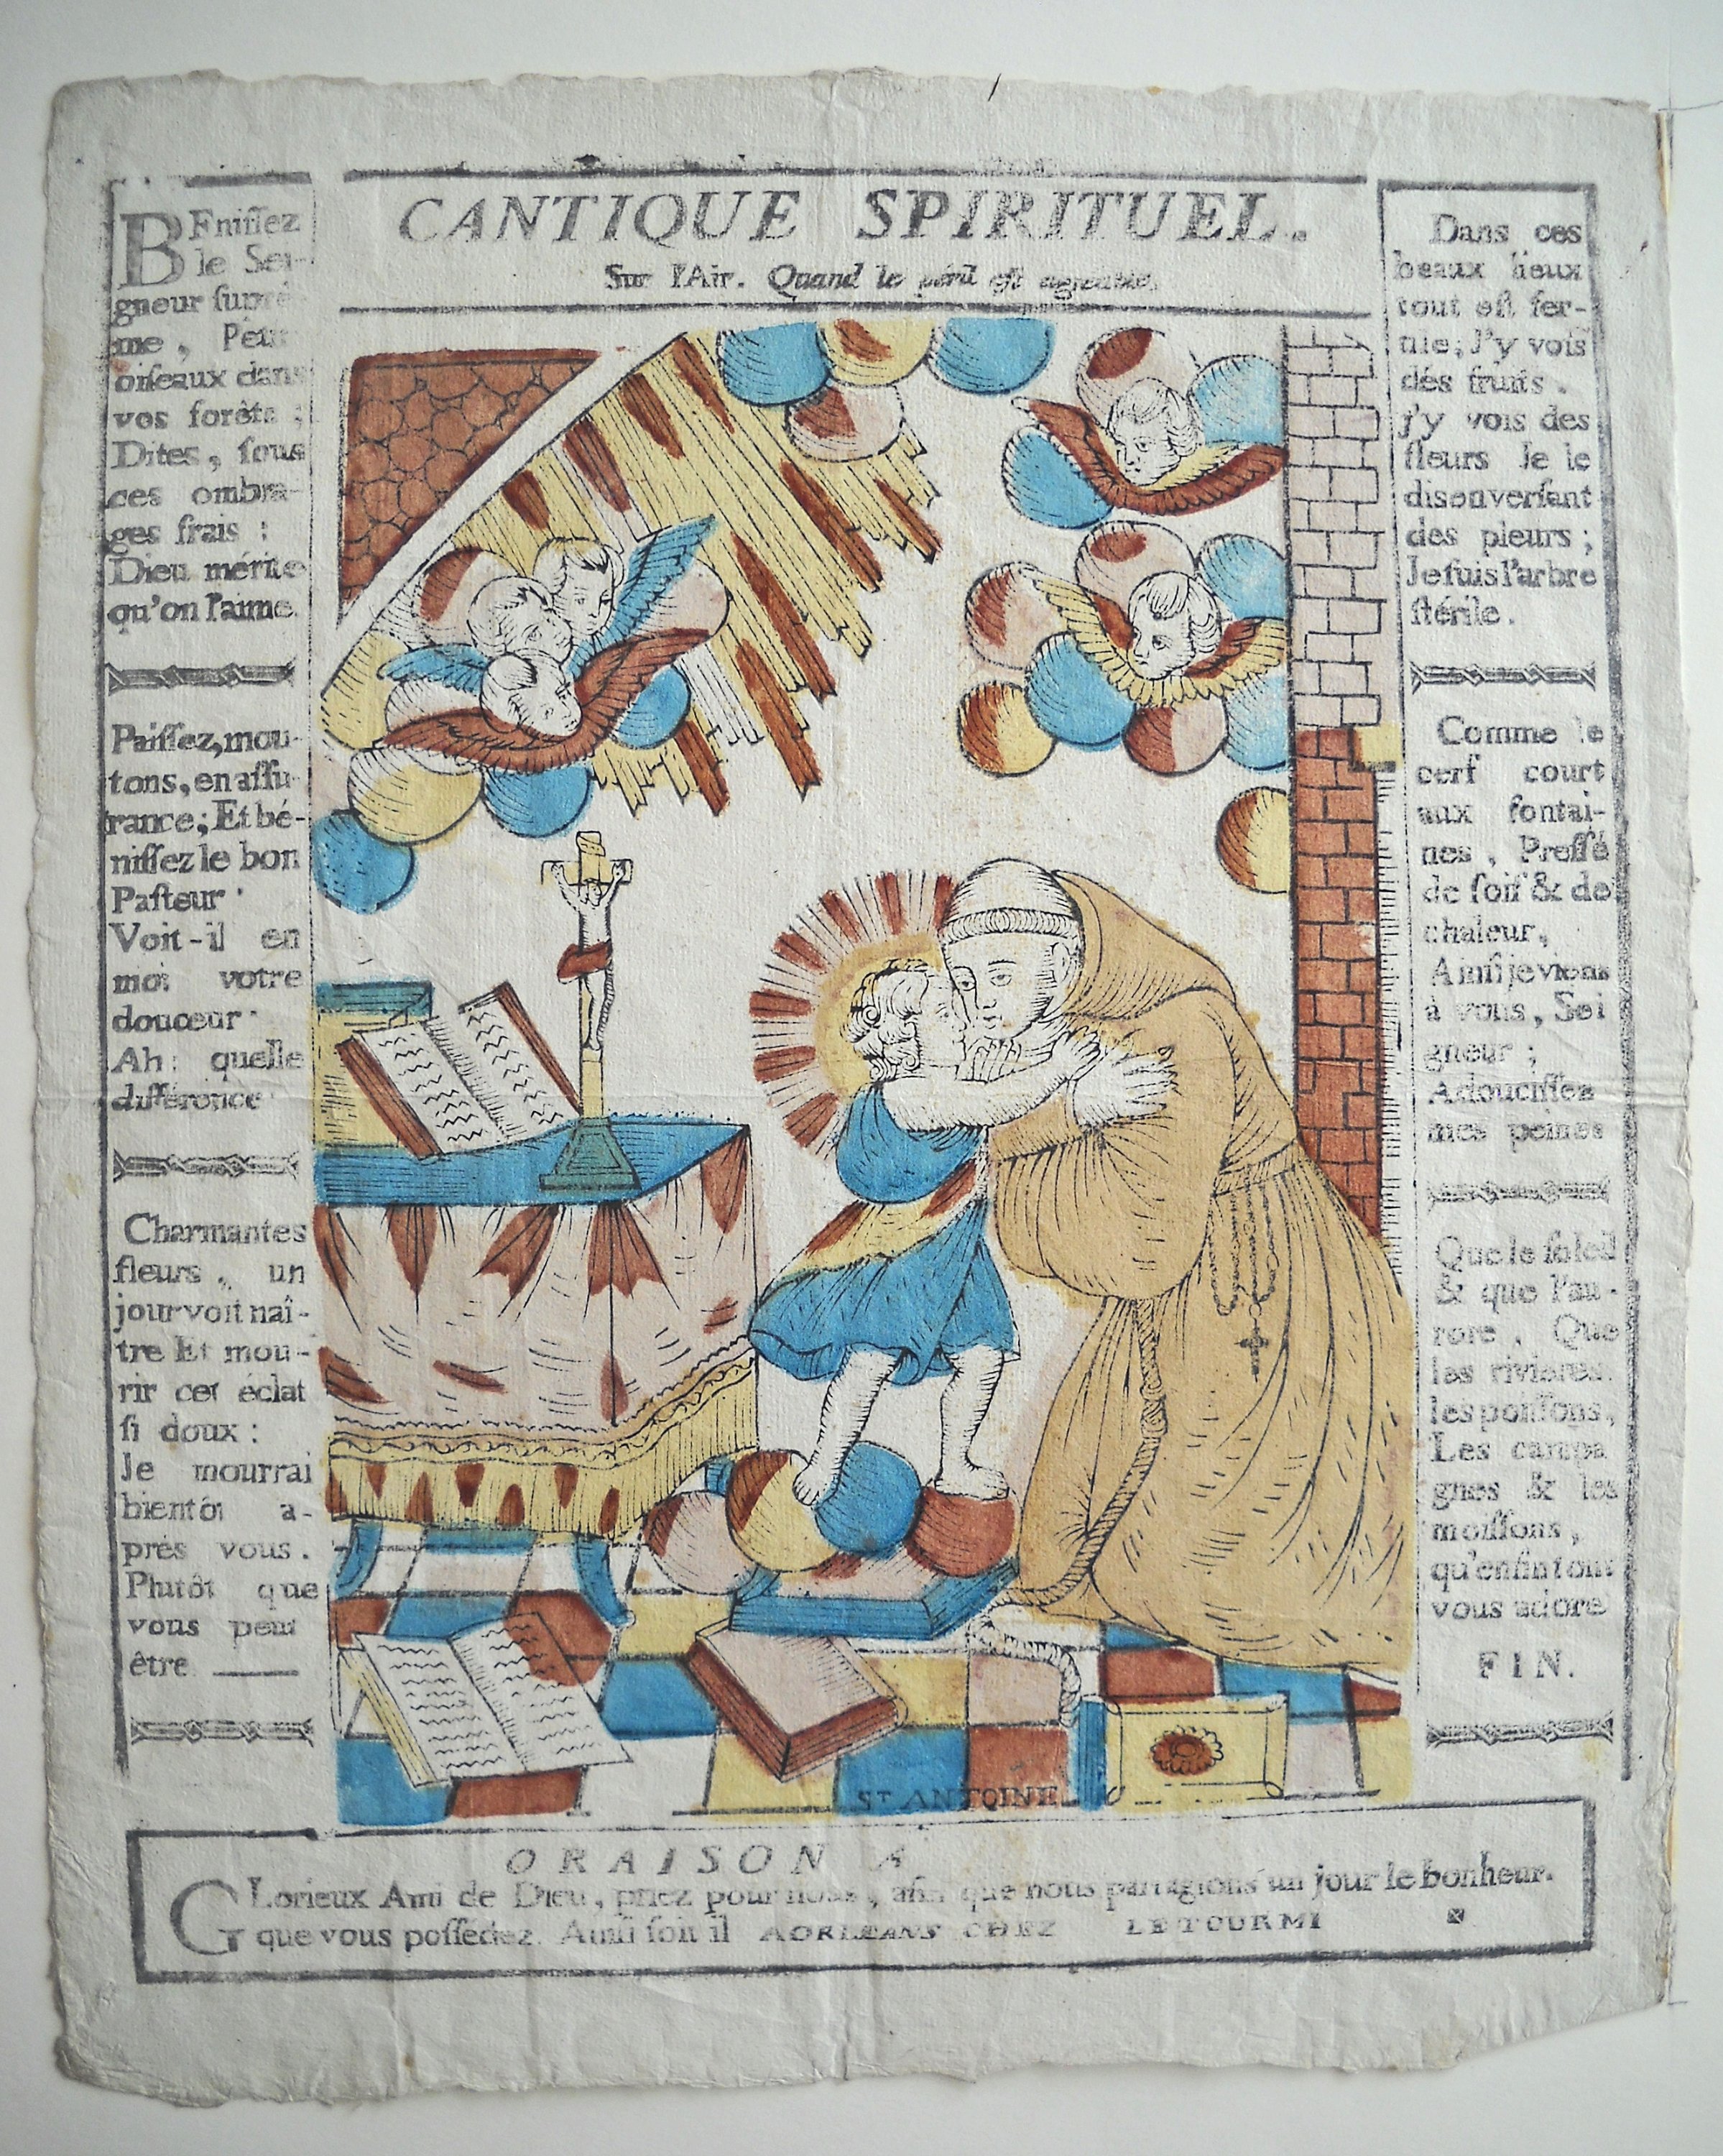 CANTIQUE SPIRITUEL.
Sur l'Air. Quand le péril est agréable.
BEniſſez
le Sei-
gneur ſupré-
me, Petits
oiſeaux dans
vos forêts ;
Dites, ſous
ces ombra-
ges frais :
Dieu mérite
qu'on l'aime.
Paiſſez, mou-
tons, en aſſu-
rance ; Et bé-
niſſez le bon
Paſteur
Voit-il en
moi votre
douceur
Ah : quelle
différence
Charmantes
fleurs, un
jour voit naî-
tre Et mou-
rir cet éclat
ſi doux :
Je mourrai
bientôt a-
prés vous.
Plutôt que
vous peut
être
Dans ces
beaux lieux
tout eſt fer-
tile ; J'y vois
dés fruits.
j'y vois des
fleurs Je le
dis en verſant
des pleurs ;
Je ſuis l'arbre
ſtérile.
Comme le
cerf court
aux fontai-
nes, Preſſé
de ſoif & de
chaleur,
Ainſi je viens
à vous, Sei
gneur ;
Adouciſſez
mes peines
Que le ſoleil
& que l'au-
rore, Que
les rivieres,
les poiſſons,
Les campa
gnes & les
moiſſons,
qu'enfin tout
vous adore
FIN.
ST ANTOINE
ORAISON A
GLorieux Ami de Dieu, priez pour nous, afin que nous partagions un jour le bonheur.
que vous poſſédez. Ainſi ſoit il A ORLEANS CHEZ LETOURMI